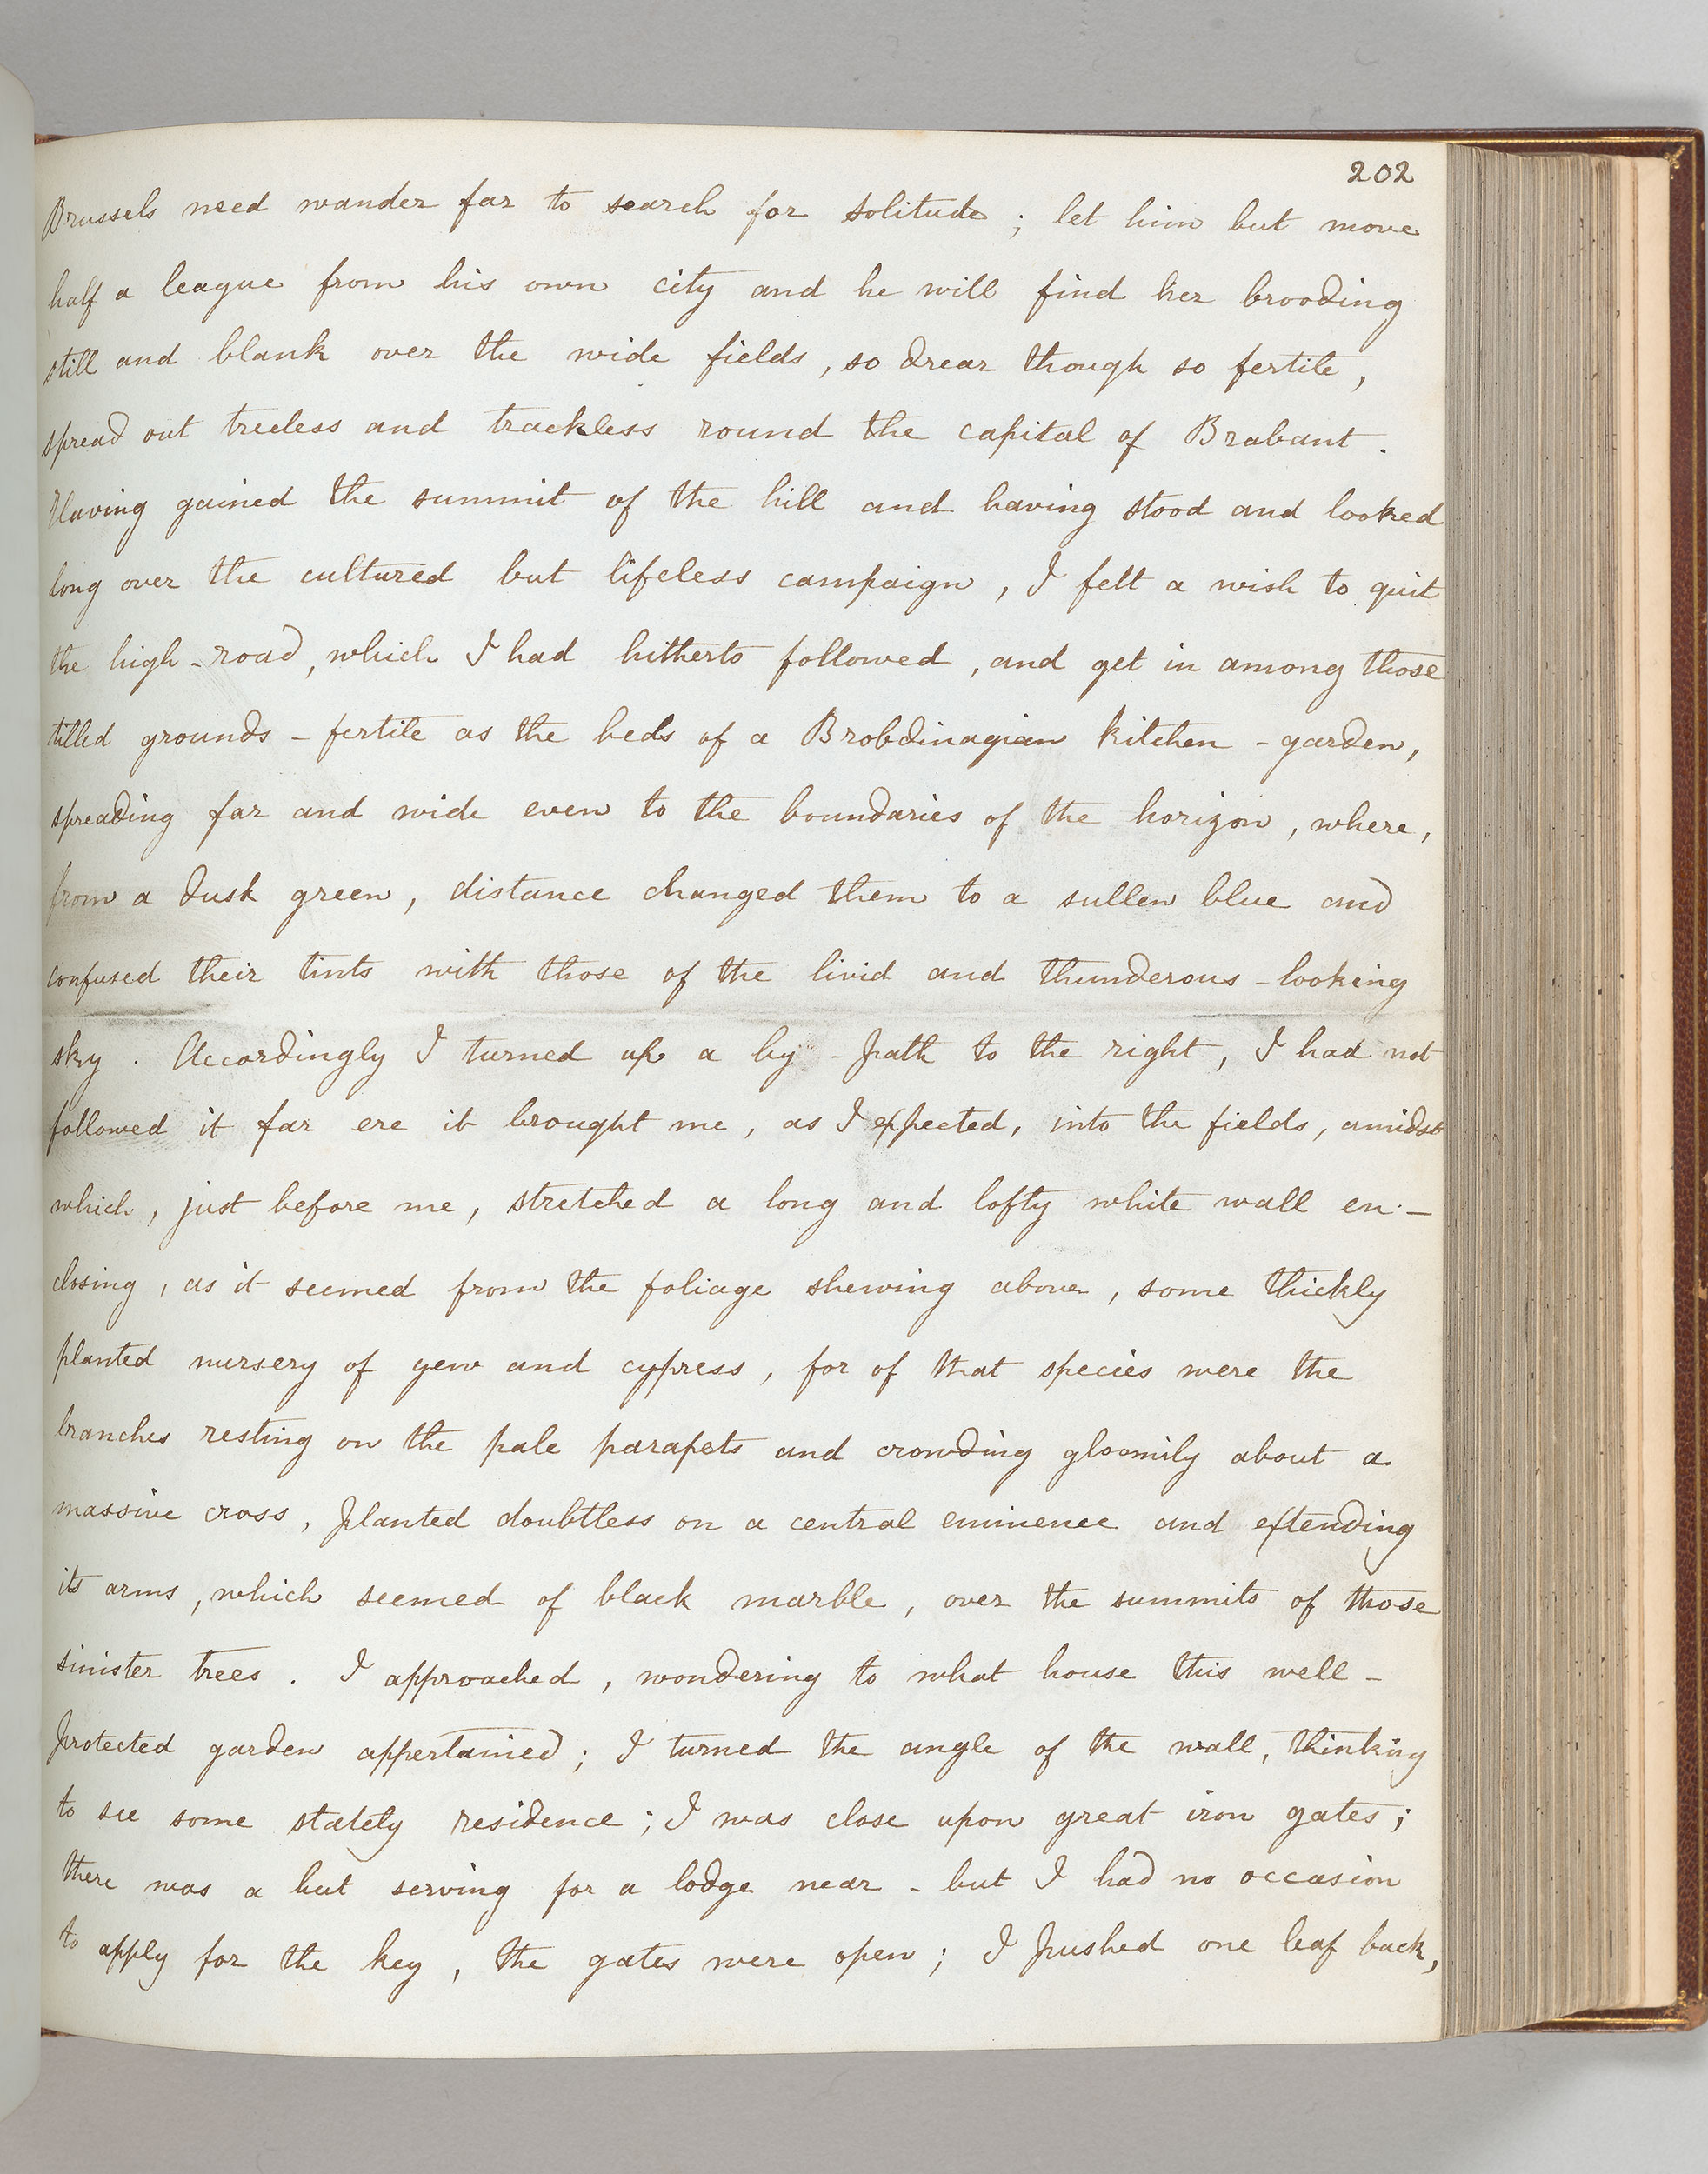 202
Brussels need wander far to search for solitude ; let him but move
half a league from his own city and he will find her brooding
still and blank over the wide fields , so drear though so fertile ,
spread out treeless and trackless round the capital of Brabant .
Having gained the summit of the hill and having stood and looked
long over the cultured but lifeless campaign , I felt a wish to quit
the high - road , which I had hitherto followed , and get in among those
tilled grounds - fertile as the beds of a Brobdinagian kitchen - garden ,
spreading far and wide even to the boundaries of the horizon , where ,
from a dusk green , distance changed them to a sullen blue and
confused their tints with those of the livid and thunderous - looking
sky . Accordingly I turned up a by - path to the right , I had not
followed it far ere it brought me , as I expected , into the fields , amidst
which , just before me , stretched a long and lofty white wall en -
closing , as it seemed from the foliage shewing above , some thickly
planted nursery of yew and cypress , for of that species were the
branches resting on the pale parapets and crowding gloomily about a
massive cross , planted doubtless on a central eminence and extending
its arms , which seemed of black marble , over the summits of those
sinister trees . I approached , wondering to what house this well -
protected garden appertained ; I turned the angle of the wall , thinking
to see some stately residence ; I was close upon great iron gates ;
there was a hut serving for a lodge near - but I had no occasion
to apply for the key , the gates were open ; I pushed one leaf back ,